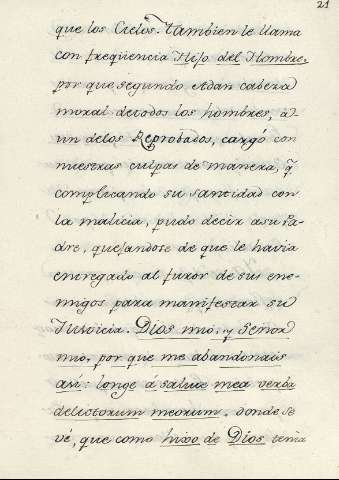 21
que los Cielos. Tambien le llama
con freqüencia Hijo del Hombre,
por que segundo Adan cabeza
moral de todos los hombres, á
un delos Reprobados, cargó con
nuestras culpas de manera, q̃
complicando su santidad con
la malicia, pudo decir asu Pa-
dre, quejandose de que le havia
entregado al furor de sus ene-
migos para manifestar su
Justicia. Dios mio, y Señor
mio, por que me abandonais
asi: longe á salute mea verba
delictorum meorum. donde se
vé, que como hixo de Dios tenia